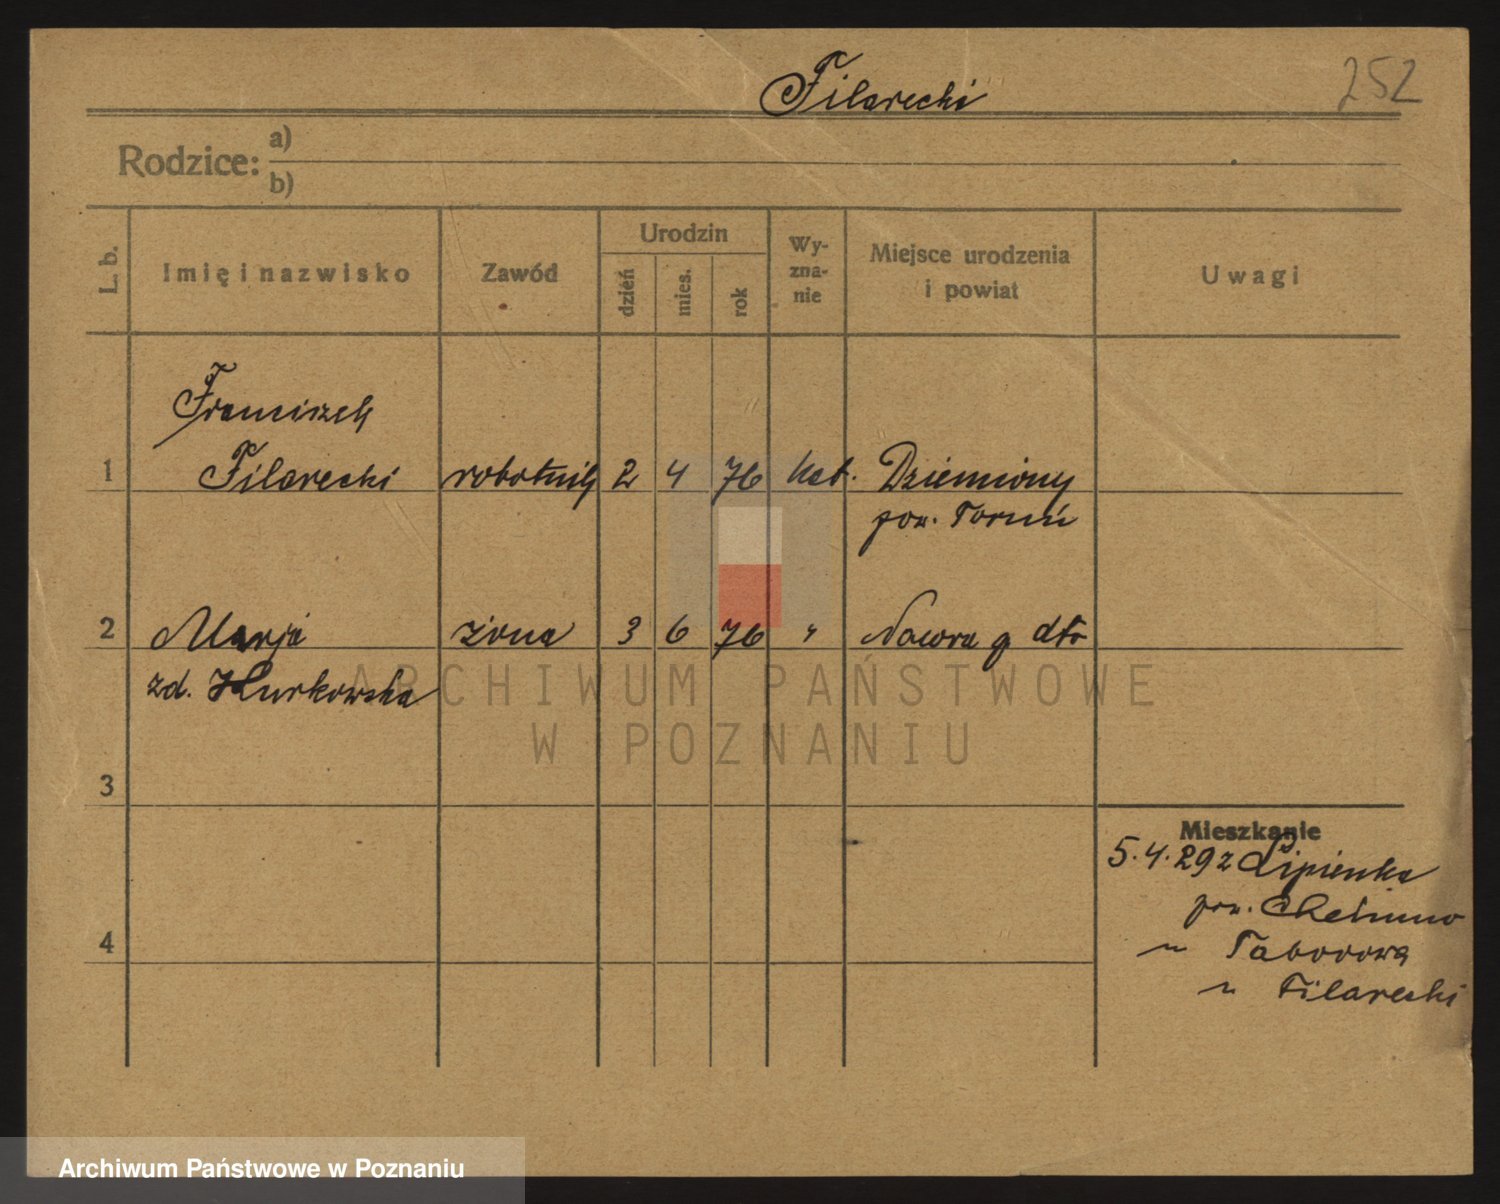 Filarecki 252
Rodzice: a)
b)
L. b. Imię i nazwisko Zawód Urodzin dzień mies. rok Wy-zna-nie Miejsce urodzenia i powiat Uwagi
Franciszek
1 Filarecki robotnik 2 4 76 kat. Dziemiony
pow. Toruń
2 Marja żona 3 6 76 " Nawra dto
zd. Hurkowska
ARCHIWUM PAŃSTWOWE
W POZNANIU
3
Mieszkanie
5.4.29 z Lipienka
pow. Chełmno
4 u Taborowa
u Filarecki
Archiwum Państwowe w Poznaniu